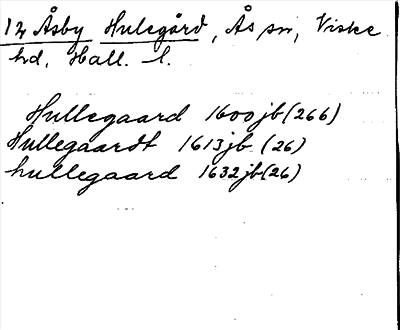 12 Åsby Hulegård, Ås sn, Viske
hd, Hall. l.
Hullegaard 1600jb (266)
Hullegaardt 1613jb (26)
hullegaard 1632jb (26)